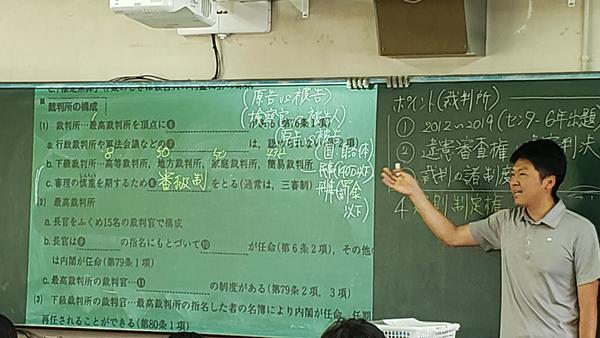 裁判所の構成
(1) 裁判所…最高裁判所を頂点に❻
a.行政裁判所や軍法会議などの❼ は、認められない
b.下級裁判所…高等裁判所，地方裁判所，家庭裁判所，簡易裁判所
8 50 50 438
c.審理の慎重を期するため❽ 審級制 をとる(通常は，三審制)
(2) 最高裁判所
a.長官をふくめ15名の裁判官で構成
b.長官は❾ の指名にもとづいて❿ が任命(第6条2項)，その他
は内閣が任命(第79条1項)
c.最高裁判所の裁判官…⓫ の制度がある(第79条2項，3項)
(3) 下級裁判所の裁判官…最高裁判所の指名した者の名簿により内閣が任命，任期
再任されることができる(第80条1項)
(原告vs被告)
原告 被告
以下)
ポイント(裁判所)
① 2012〜2019(センター6年出題)
② 違憲審査権
③ 裁判の諸制度